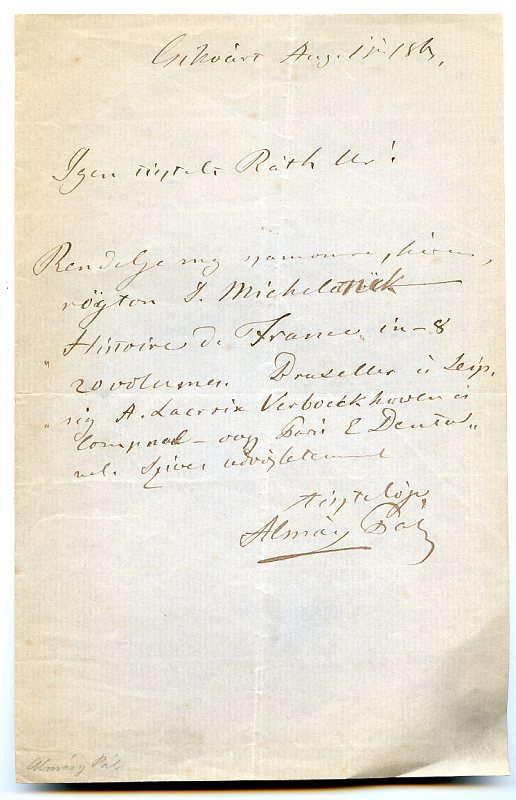 Aug. 186
Igen tisztelt Ráth Ur!
Rendelje meg számomra, kérem,
J. Micheletnek
Histoire de France, in-8
20 volumes. Bruxelles és Leip-
zig A. Lacroix Verboeckhoven és
Compnál – vagy Paris E Dentu-
nél. Szives üdvözlettel
tisztelője
Almásy Pál
Almásy Pál